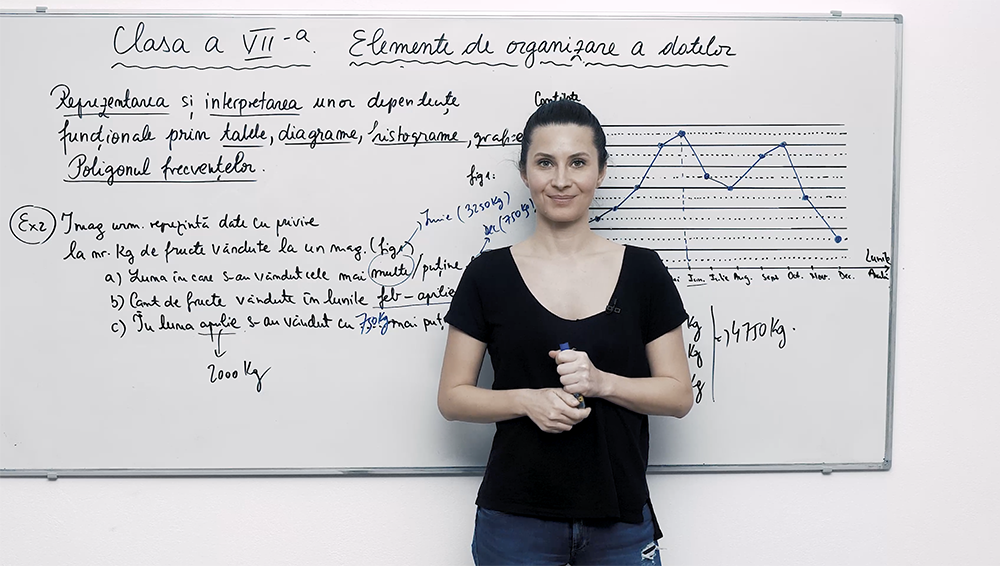 Clasa a VII-a. Elemente de organizare a datelor
Reprezentarea și interpretarea unor dependențe
funcționale prin tabele, diagrame, histograme,
Poligonul frecvențelor.
fig 1:
Iunie (3250 Kg)
Dec (750 Kg)
Ex2 Imag urm. reprezintă date cu privire
la nr. Kg de fructe vândute la un mag. (fig 1)
a) Luna în care s-au vândut cele mai multe / puține
b) Cant de fructe vândute în lunile feb - aprilie
c) În luna aprilie s-au vândut cu 750 Kg mai
2000 Kg
Cantitate
Lunile
Iun. Iulie Aug. Sept Oct. Nov. Dec.
Kg
Kg
Kg
4750 Kg.